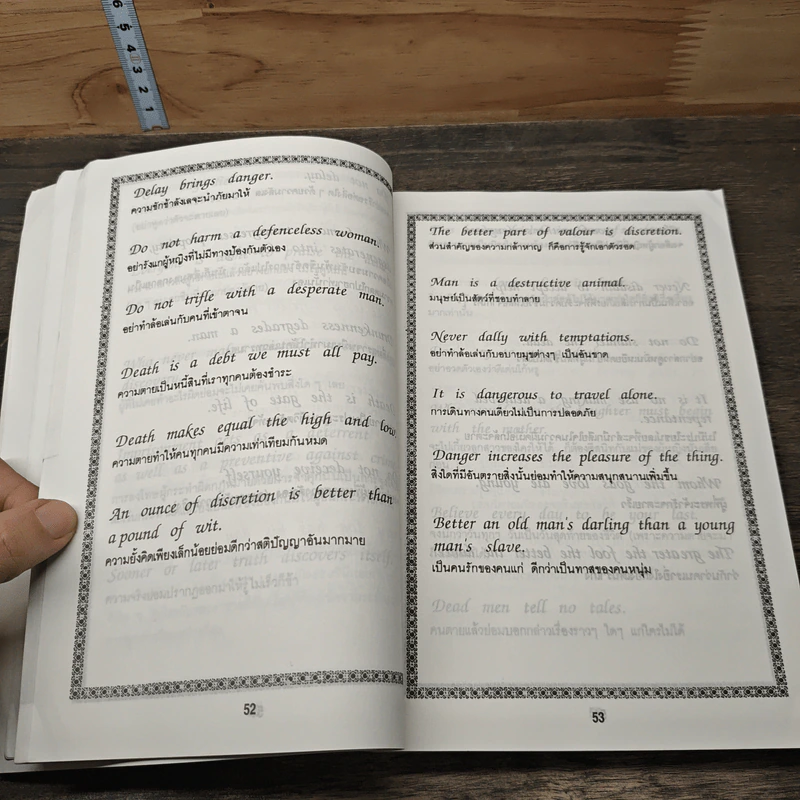 Delay brings danger.
ความชักช้าลังเลจะนำภัยมาให้
Do not harm a defenceless woman.
อย่ารังแกผู้หญิงที่ไม่มีทางป้องกันตัวเอง
Do not trifle with a desperate man.
อย่าทำล้อเล่นกับคนที่เข้าตาจน
Death is a debt we must all pay.
ความตายเป็นหนี้สินที่เราทุกคนต้องชำระ
Death makes equal the high and low.
ความตายทำให้คนทุกคนมีความเท่าเทียมกันหมด
An ounce of discretion is better than
a pound of wit.
ความยั้งคิดเพียงเล็กน้อยย่อมดีกว่าสติปัญญาอันมากมาย
52
The better part of valour is discretion.
ส่วนสำคัญของความกล้าหาญ ก็คือการรู้จักเอาตัวรอด
Man is a destructive animal.
มนุษย์เป็นสัตว์ที่ชอบทำลาย
Never dally with temptations.
อย่าทำล้อเล่นกับอบายมุขต่างๆ เป็นอันขาด
It is dangerous to travel alone.
การเดินทางคนเดียวไม่เป็นการปลอดภัย
Danger increases the pleasure of the thing.
สิ่งใดที่มีอันตรายสิ่งนั้นย่อมทำให้ความสนุกสนานเพิ่มขึ้น
Better an old man's darling than a young
man's slave.
เป็นคนรักของคนแก่ ดีกว่าเป็นทาสของคนหนุ่ม
Dead men tell no tales.
คนตายแล้วย่อมบอกกล่าวเรื่องราวๆ ใดๆ แก่ใครไม่ได้
53
6
5
4
3
2
1